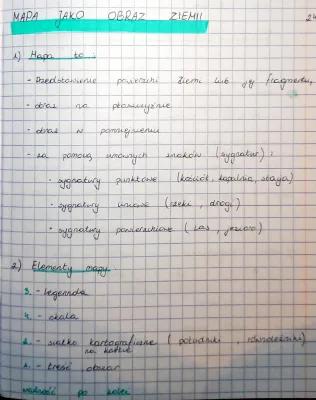 MAPA JAKO OBRAZ ZIEMII 24
1) Mapa to:
- Przedstawienie powierzchni Ziemi lub jej fragmentu,
- obraz na płaszczyźnie
- obraz w pomniejszeniu
- za pomocą umownych znaków (sygnatur):
- sygnatury punktowe (kościół, kopalnia, stacja)
- sygnatury liniowe (rzeki, drogi)
- sygnatury powierzchniowe (Las, jezioro)
2) Elementy mapy
3. - legenda
4. - skala
2. - siatka kartograficzne (południki, równoleżniki)
na kartce
1. - treść, obszar
ważność po kolei